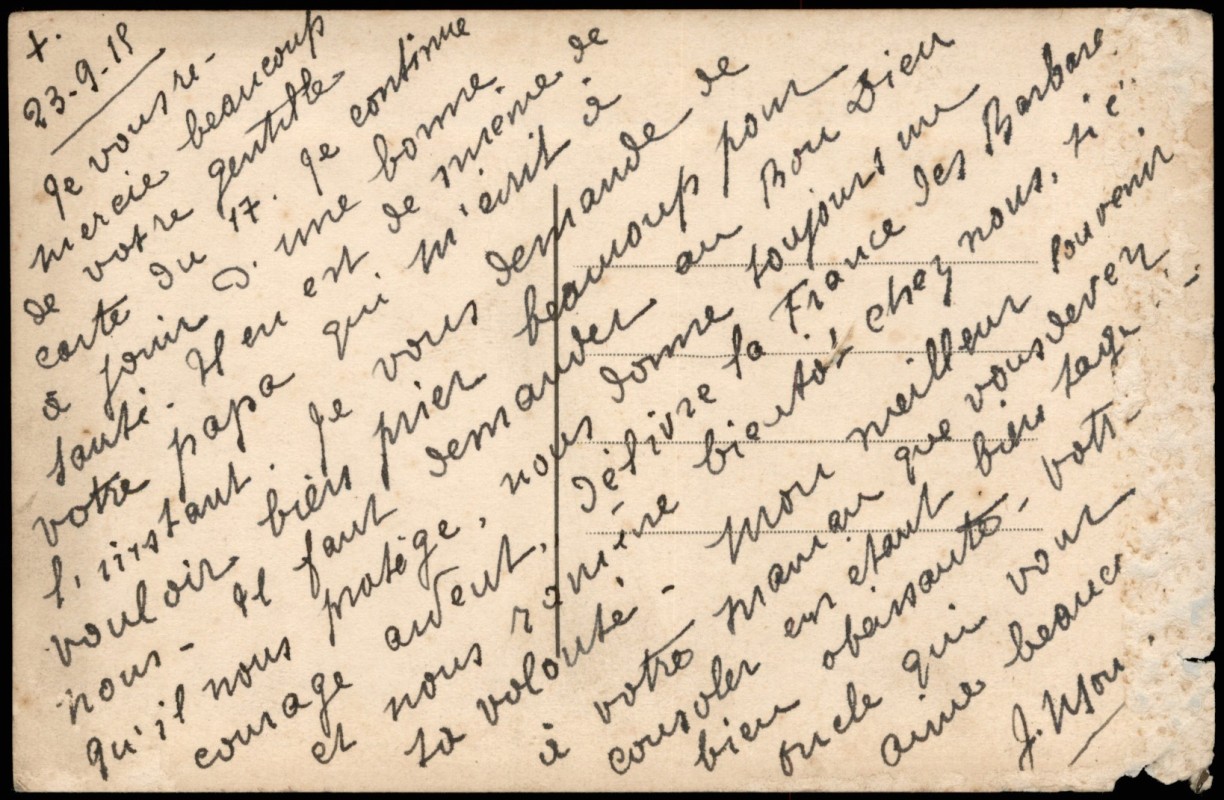 +.
23-9-15
Je vous re-
mercie beaucoup
de votre gentille
carte du 17. Je continue
à jouir d'une bonne
santé. Il en est de même de
votre papa qui m'écrit à
l'instant. Je vous demande de
vouloir bien prier beaucoup pour
nous - Il faut demander au Bon Dieu
qu'il nous protège, nous donne toujours un
courage ardent, délivre la France des Barbare
et nous ramène bientôt chez nous, si c'
sa volonté - Mon meilleur souvenir
à votre maman que vous devez
consoler en étant bien sage
bien obéissante - votr
oncle qui vous
aime beauco
J.